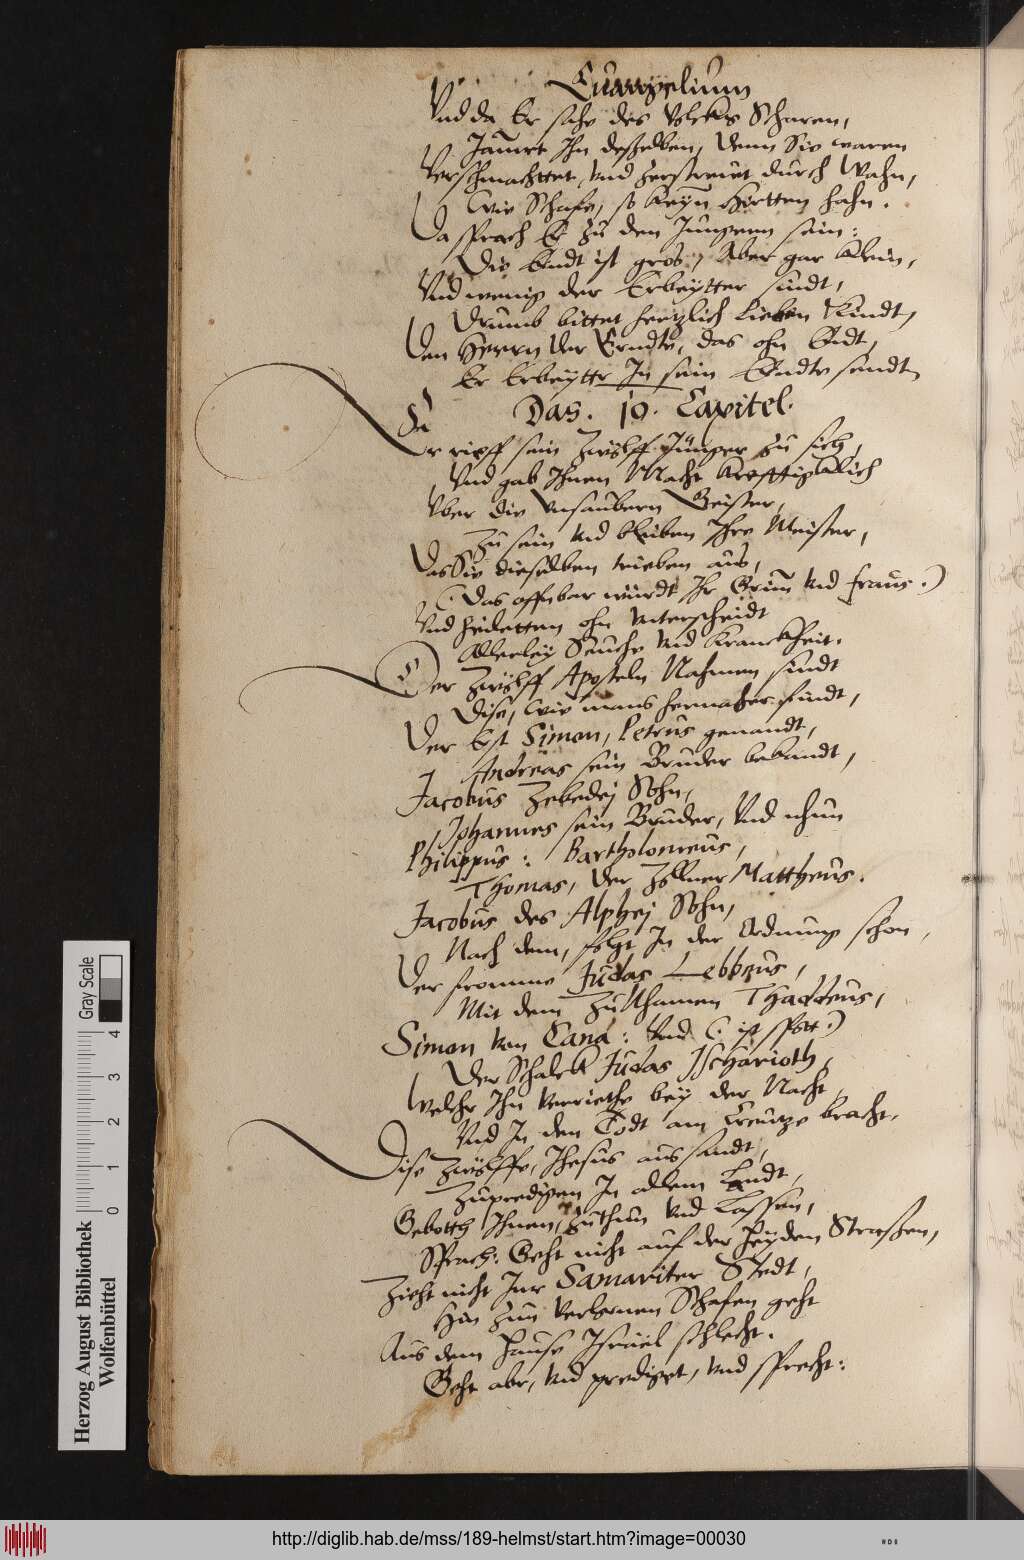 Euangelium
Vnd da Er sahe des Volcks Scharen,
Jamert Ihn desselben, denn Sie waren
Verschmachttet, vnd zerstreuet durch Wahn,
Wie Schafe, so keyn Hirtten hahn.
Da sprach Er zu den Jungern sein:
Die Erndt ist gros, Aber gar klein,
Vnd wenig der Erbeytter sindt,
Drumb bittet hertzlich lieben Kindt,
Den Herrn der Erndte, das ohn Endt,
Er Erbeyttr In sein Erndte sendt
Das. 10. Capitel.
Er rieff sein Zwölff Jünger zu sich,
Vnd gab Ihnen Macht krefftigklich
Vber die Vnsaubern Geister,
Zu sein vnd bleiben Ihre Meister,
Das Sie dieselben trieben aus,
(Das offnbar würdt Ihr Grim vnd fraus.)
Vnd heiletten ohn vnterscheidt
Allerley Seuche vnd Kranckheit.
Der Zwölff Aposteln Nahmen sindt
Dise, wie mans hernacher findt,
Der Erst Simon, Petrus genandt,
Andreas sein Bruder bekandt,
Jacobus Zebedej Sohn,
Johannes sein Bruder, Vnd nhun
Philippus: Bartholomeus,
Thomas, der Zöllner Mattheus.
Jacobus des Alphej Sohn,
Nach dem, folgt In der Ordnung schon,
Der fromme Judas Lebbeus,
Mit dem ZuNhamen Thaddeus,
Simon von Cana: Vnd (ist spott.)
Der Schalck Judas Ischarioth,
Welchr Ihn verriethe bey der Nacht,
Vnd In den Todt am Creutze bracht.
Dise Zwölffe, Jhesus aussandt,
Zupredigen In allem Landt,
Gebotth Ihnen, Zuthun vnd lassen,
Sprach: Geht nicht auf der Heyden Strassen,
Zieht nicht Inr Samariter Stedt,
Hin zun verlornen Schafen geht
Aus dem Hause Israel schlecht.
Geht abr, vnd prediget, vnd sprecht:
Gray Scale
0 1 2 3 4
Herzog August Bibliothek
Wolfenbüttel
http://diglib.hab.de/mss/189-helmst/start.htm?image=00030